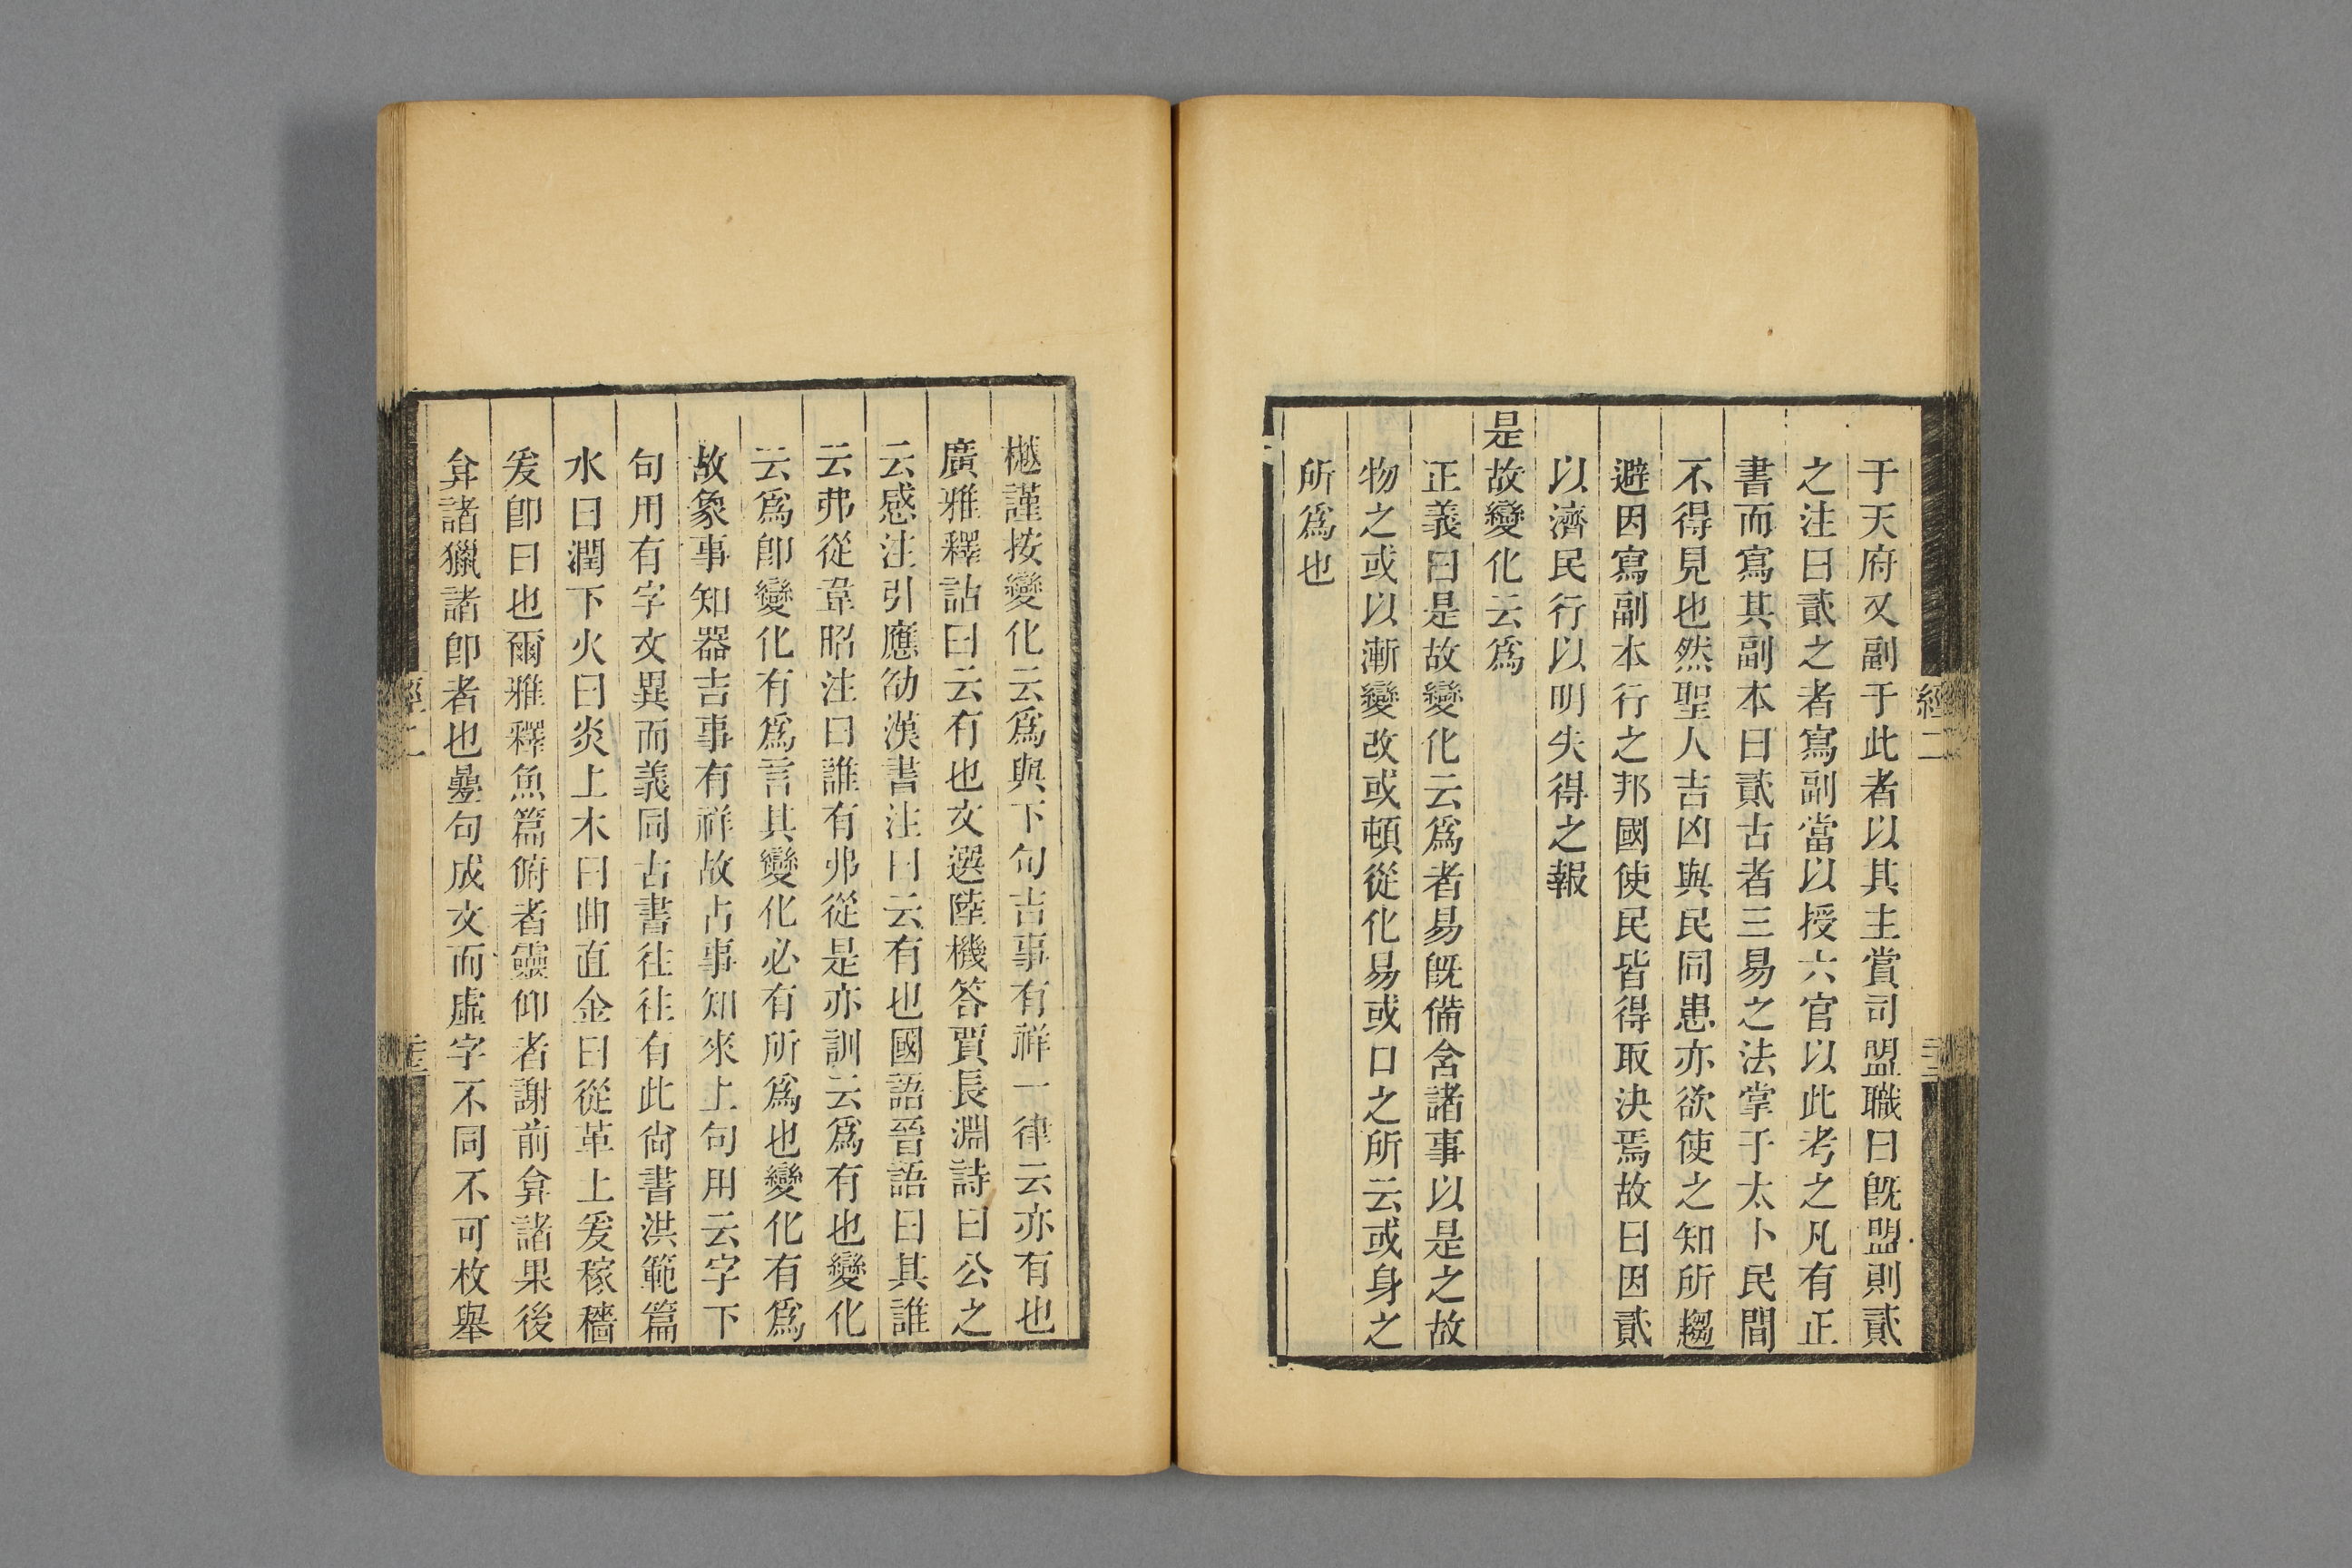 于天府又副于此者以其主賞司盟職曰旣盟則貳
之注曰貳之者寫副當以授六官以此考之凡有正
書而寫其副本曰貳古者三易之法掌于太卜民間
不得見也然聖人吉凶與民同患亦欲使之知所趨
避因寫副本行之邦國使民皆得取決焉故曰因貳
以濟民行以明失得之報
是故變化云爲
正義曰是故變化云爲者易旣備含諸事以是之故
物之或以漸變改或頓從化易或口之所云或身之
所爲也
經二
樾謹按變化云爲與下句吉事有祥一律云亦有也
廣雅釋詁曰云有也文選陸機答賈長淵詩曰公之
云感注引應劭漢書注曰云有也國語晉語曰其誰
云弗從韋昭注曰誰有弗從是亦訓云爲有也變化
云爲卽變化有爲言其變化必有所爲也變化有爲
故象事知器吉事有祥故占事知來上句用云字下
句用有字文異而義同古書往往有此尙書洪範篇
水曰潤下火曰炎上木曰曲直金曰從革土爰稼穡
爰卽曰也爾雅釋魚篇俯者靈仰者謝前弇諸果後
弇諸獵諸卽者也疊句成文而虛字不同不可枚舉
經二